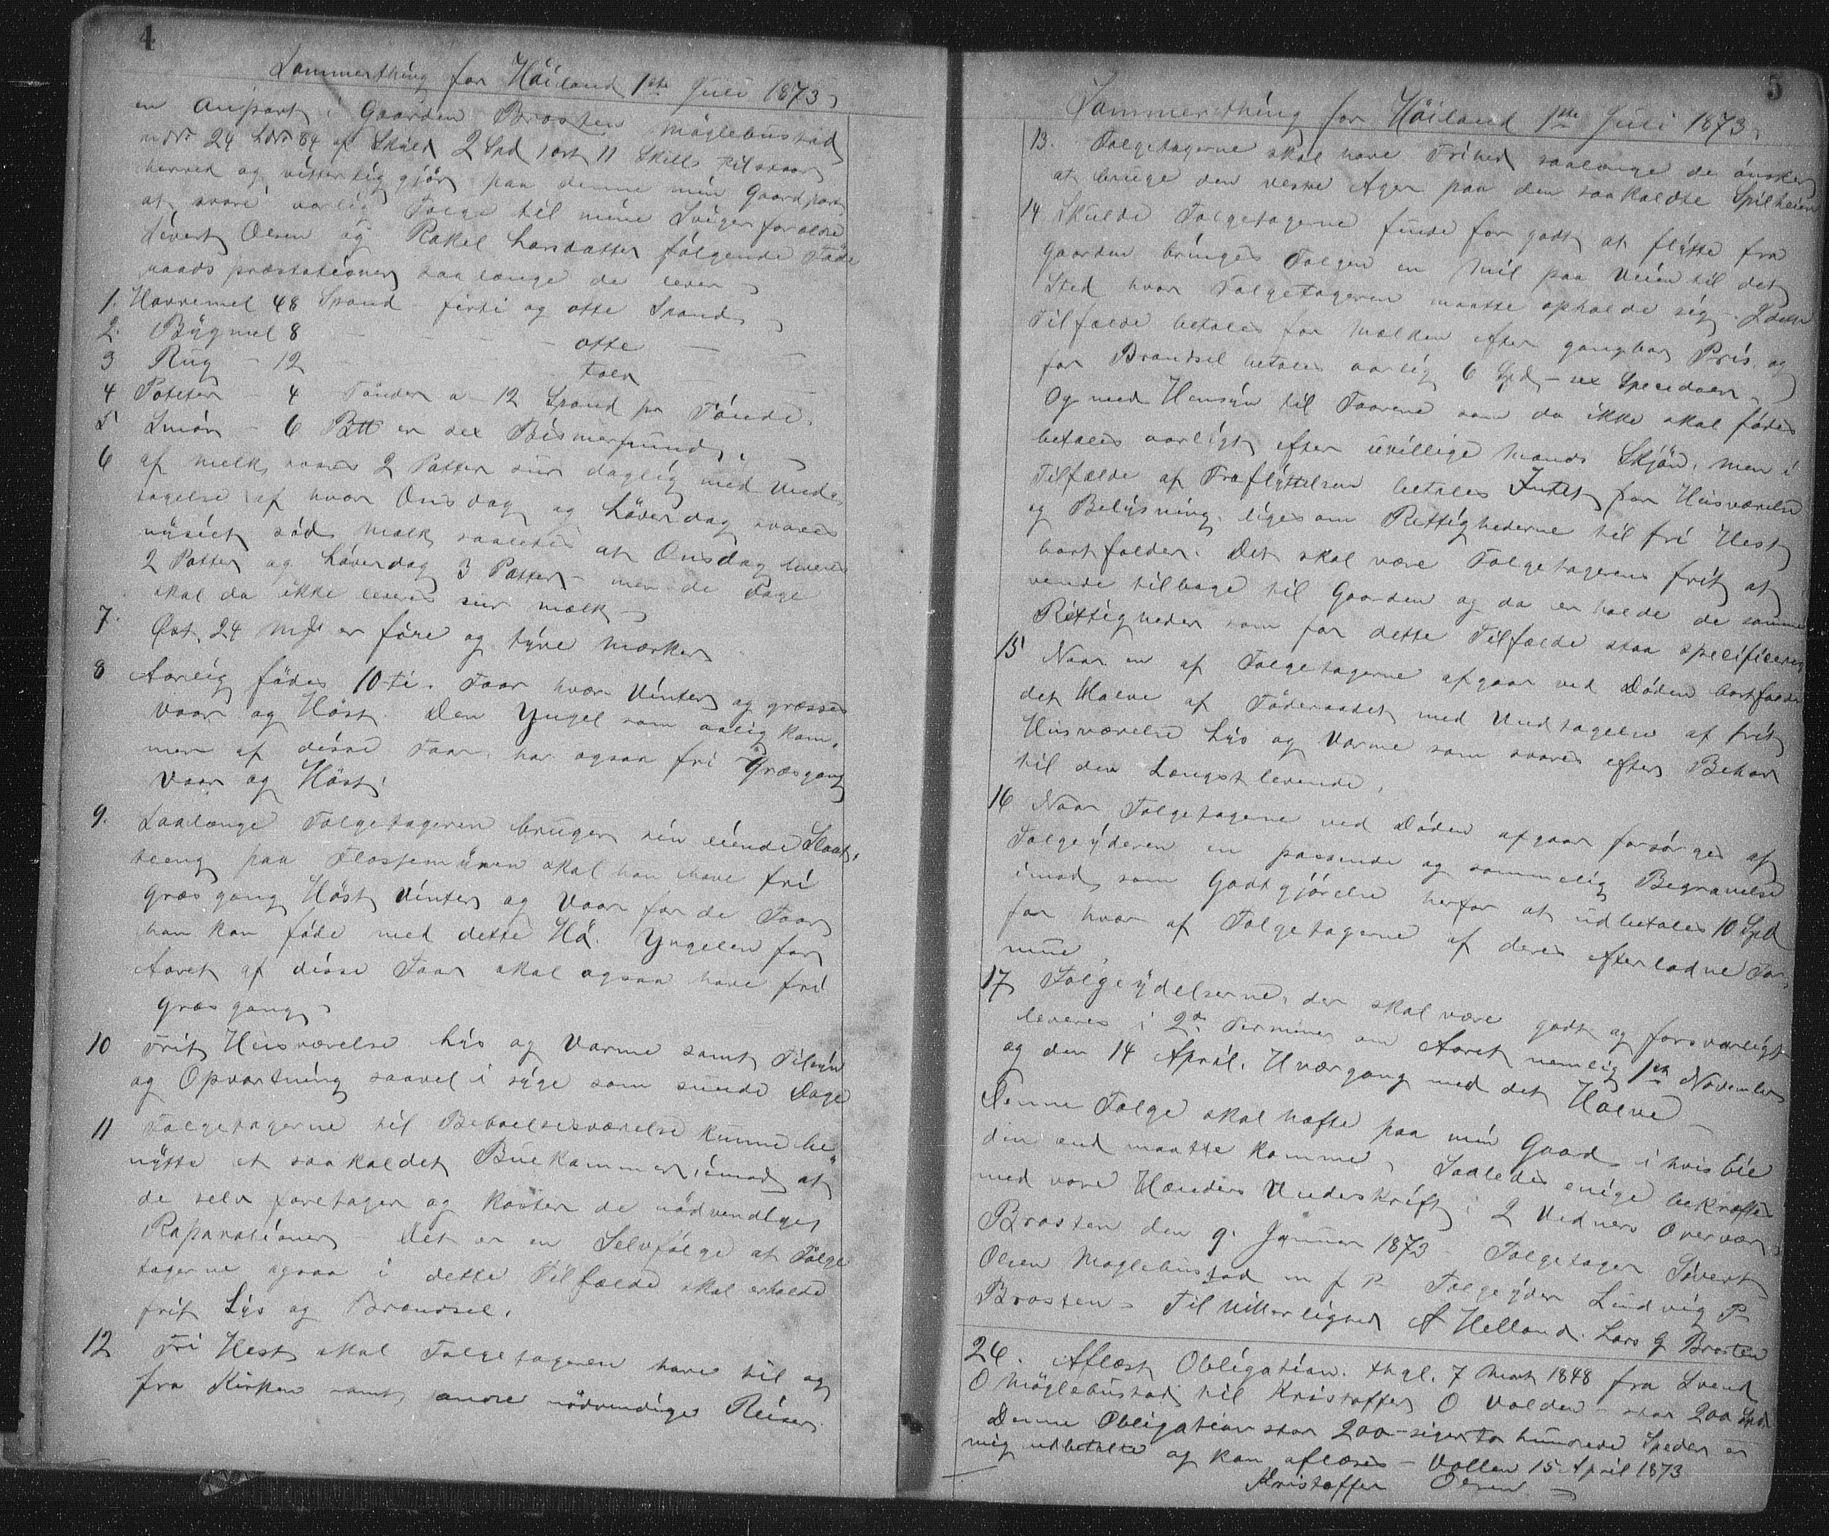 4
Sommerthing for Höiland 1ste Juli 1873
en anpart i Gaarden Brosten Möglebustad
m. Nr 24 LNr 84 af Skyld 2 Spd 1 ort 11 Skill tilstaar
herved og vitterlig gjör paa denne min Gaardpart
at svare aarlig Folge til mine Svigerforældre
Sivert Olsen og Rakel Larsdatter fölgende Föde
raads præstationer saa længe de lever
1. Havremel 48 Spand firti og otte Spand
2. Bÿgmel 8 - - - - otte - -
3 Rug - 12 tolv - -
4 Poteter - 4 Tönder a 12 Spand pr Tönde.
5 Smör - 6 Btt er sex Bismerpund.
6 af melk svares 2 Potter sur daglig med Und-
tagelse af hver Onsdag og Löverdag svares
nÿsiet söd Melk saaledes at Onsdag leveres
2 Potter og Löverdag 3 Potter - men de Dage
skal da ikke leveres sur mælk
7. Ost 24 Mrk er fire og tÿve mærker
8 Aarlig födes 10-ti. Faar hver Vinter og græsses
Vaar og Höst. Den Yngel som aarlig kom-
mer af disse Faar har ogsaa fri Græsgang
Vaar og Höst.
9. Saalænge Folgetageren bruger sin eiende Slaat-
teeng paa Flostemÿren skal han have fri
græsgang Höst Vinter og Vaar for de Faar
han kan föde med dette Hö. Yngelen for
Aaret af disse Faar skal ogsaa have fri
græsgang.
10 Frit Husværelse Lÿs og Varme samt Tilsÿn
og Opvartning saavel i sÿge som sunde Dage
11 Folgetagerne til Beboelsesværelse kunne be-
nÿtte et saakaldet Buekammer, imod at
de selv foretager og koster de nödvendige
Raparationer - Det er en Selvfölge at Folge
tagerne ogsaa i dette Tilfælde skal erholde
frit Lÿs og Brændsel.
12 Fri Hest skal Folgetageren have til og
fra Kirken samt andre nödvendige Reiser.
5
Sommerthing for Höiland 1ste Juli 1873.
13. Folgetagerne skal have Frihed saalænge de önsker
at bruge den vestre Ager paa den saakaldte Spilheien
14 Skulde Folgetagerne finde for godt at flÿtte fra
Gaarden bringes Folgen en Mil paa Veien til det
Sted hvor Folgetageren maatte opholde sig - I dette
Tilfælde betales for Mælken efter gangbar Pris og
for Brændsel betales aarlig 6 Spd - sex Speciedaler
Og med Hensÿn til Faarene som da ikke skal födes
betales aarligt efter uvillige Mænds Skjön, men i
Tilfælde af Fraflÿttelsen betales Intet for Husværelse
og Belÿsning, ligesom Rettighederne til fri Hest
bortfalder. Det skal være Folgetagerens frit at
vende tilbage til Gaarden og da erholde de samme
Rettigheder som for dette Tilfælde staa specificeret
15 Naar en af Folgetagerne afgaar ved Döden bortfalder
det Halve af Föderaadet med Undtagelse af frit
Husværelse Lÿs og Varme som svares efter Behov
til den Længstlevende.
16 Naar Folgetagerne ved Döden afgaar forsörges af
Folgeÿderen en passende og sömmelig Begravelse
imod som Godtgjörelse herfor at udbetales 10 Spd
for hver af Folgetagerne af deres efterladne For-
mue
17 Folgeÿdelserne, der skal være godt og forsvarligt
leveres i 2de Terminer om Aaret nemlig 1ste November
og den 14 April. Hvergang med det Halve -
Denne Folge skal hefte paa min Gaard i hvis Eie
den end maatte komme. Saaledes enige bekræftes
med vore Hænders Underskrift i 2 Vidners Overvær
Brosten den 9. Januar 1873 - Folgetager Sivert
Olsen Möglebustad m f P Folgeÿder Lindvig P
Brosten - Til Vitterlighed A Helland. Lars G Brosten
26. Aflæst Obligation. thgl. 7 Mart 1848 fra Svend
O Möglebustad til Kristoffer O Valden - stor 200 Spd.
Denne Obligation stor 200 - siger to hundrede Speder er
mig udbetalte og kan aflæses - Vollen 15 April 1873
Kristoffer Olsen